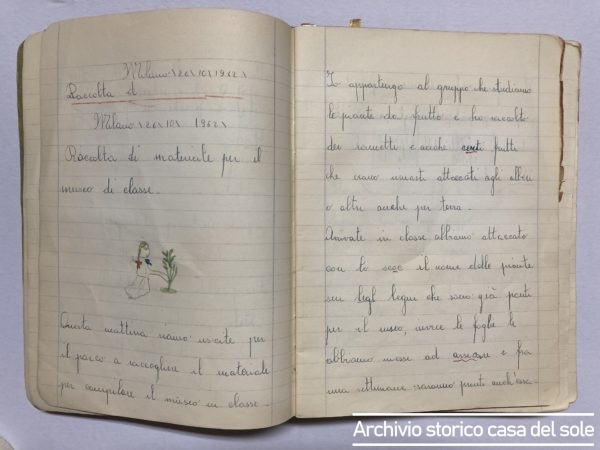 Milano \26\10\1962\
Raccolta d
Milano \26\10\ 1962\
Raccolta di materiale per il
museo di classe.
Questa mattina siamo uscite per
il parco a raccogliere il materiale
per compilare il museo in classe.
Io appartengo al gruppo che studiamo
le piante da frutto e ho raccolto
dei rametti e anche certi frutti
che erano rimasti attaccati agli alberi
o altri anche per terra.
Arrivate in classe abbiamo attaccato
con lo scoc il nome delle piante
sui legni che sono già pronti
per il museo, invece le foglie le
abbiamo messe ad
e fra
una settimana saranno pronte anch'esse.
Archivio storico casa del sole